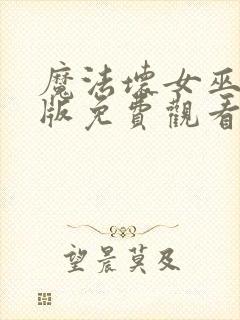 魔法壞女巫
版免費觀看
望晨莫及